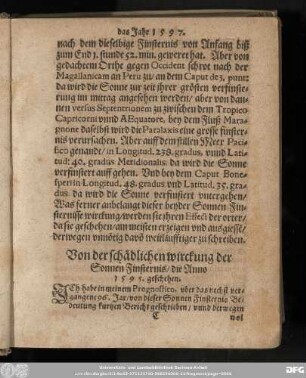 das Jahr 1597.
nach dem dieselbige Finsternis von Anfang biß
zum End 3. stunde 52. min. gewehret hat. Aber von
gedachtem Orthe gegen Occident schrot nach der
Magallanicam an Peru zu/ an dem Caput des 3. punct
da wird die Sonne zur zeit jhrer grösten verfinste-
rung im mittag angesehen werden/ aber von dan-
nen versus Septentrionem zu zwischen dem Tropico
Capricorni vnnd AEquatore, bey dem Fluß Mara-
gnone daselbst wird die Paralaxis eine grosse finster-
nis verursachen. Aber auff dem stillen Meer Paci-
fico genandt/ in Longitud. 238. gradus, vnnd Lati-
tud: 40. gradus Meridionalis da wird die Sonne
verfinstert auff gehen. Vnd bey dem Caput Bone-
sperr in Longitud. 48. gradus vnd Latitud. 35. gra-
dus. da wird die Sonne verfinstert vntergehen/
Was ferner anbelangt dieser beyder Sonnen Fin-
sternüsse wirckung/ werden sie jhren Effect der orter/
da sie geschehen/ am meisten erzeigen vnd ausgiesse/
derwegen vnnötig davõ weitläufftiger zu schreiben.
Von der schädlichen wirckung der
Sonnen Finsternis/ die Anno
1595. geschehen.
ICh habe in meinem Prognostico, vber das nechst ver-
gangene 96. Jar/ von dieser Sonnen Finsternis Be-
deutung kurtzen Bericht geschrieben/ vnnd derwegen
C nol